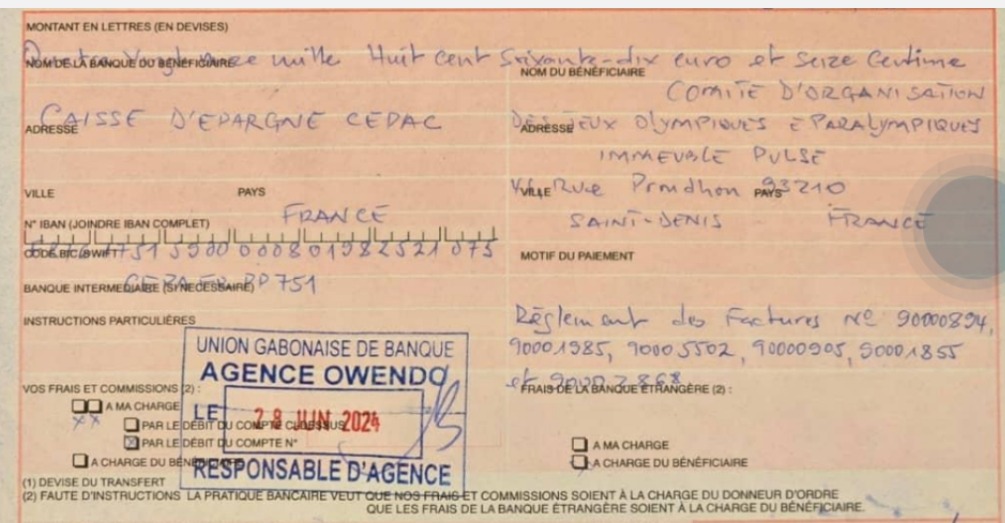 MONTANT EN LETTRES (EN DEVISES)
mille Huit cent Soixante-dix euro et Seize Centime
NOM DE LA BANQUE DU BÉNÉFICIAIRE
NOM DU BÉNÉFICIAIRE
COMITE D'ORGANISATION
CAISSE D'EPARGNE CEPAC
DES JEUX OLYMPIQUES E PARALYMPIQUES
ADRESSE
ADRESSE
IMMEUBLE PULSE
VILLE PAYS
VILLE Rue Proudhon PAYS 93210
FRANCE
SAINT-DENIS FRANCE
N° IBAN (JOINDRE IBAN COMPLET)
CODE BIC/SWIFT
MOTIF DU PAIEMENT
BANQUE INTERMÉDIAIRE (SI NÉCESSAIRE)
INSTRUCTIONS PARTICULIÈRES
Règlement des Factures N° 90000894,
90001985, 90005502, 90000905, 90001855
et
UNION GABONAISE DE BANQUE
AGENCE OWENDO
LE 28 JUN 2024
RESPONSABLE D'AGENCE
VOS FRAIS ET COMMISSIONS (2) :
FRAIS DE LA BANQUE ÉTRANGÈRE (2) :
A MA CHARGE
PAR LE DÉBIT DU COMPTE CI-DESSUS
PAR LE DÉBIT DU COMPTE N°
A CHARGE DU BÉNÉFICIAIRE
A MA CHARGE
A CHARGE DU BÉNÉFICIAIRE
(1) DEVISE DU TRANSFERT
(2) FAUTE D'INSTRUCTIONS LA PRATIQUE BANCAIRE VEUT QUE NOS FRAIS ET COMMISSIONS SOIENT À LA CHARGE DU DONNEUR D'ORDRE
QUE LES FRAIS DE LA BANQUE ÉTRANGÈRE SOIENT À LA CHARGE DU BÉNÉFICIAIRE.